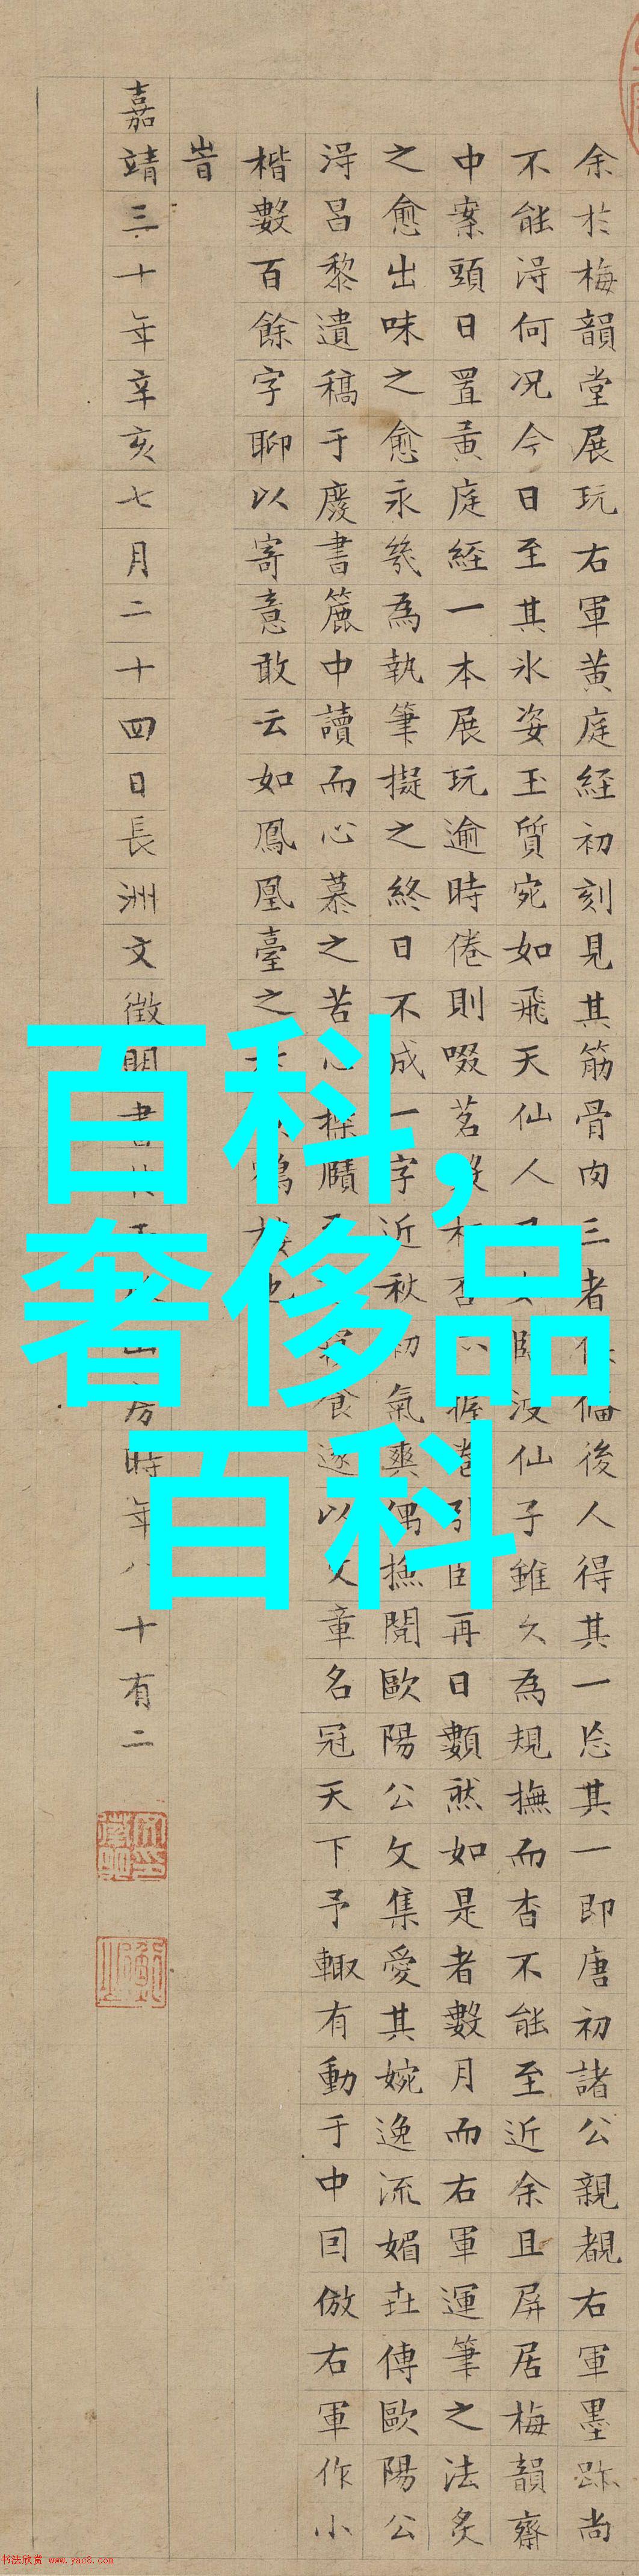 百科,
奢侈品
百科
余於梅韻堂展玩右軍黄庭経初刻見其筋骨肉三者俻後人得其一忘其一即唐初諸公親覩右軍墨跡尚
不能淂何况今日至其氷姿玉質宛如飛天仙人波仙子雖久為規撫而杳不能至近余且屏居梅韻齋
中案頭日置黄庭経一本展玩逾時倦則啜茗握卷引再日數然如是者數月而右軍運筆之法炙
之愈出味之愈永㡬為執筆擬之終日不成一字近秋初氣爽偶撫閱歐陽公文集愛其婉逸流媚世傳歐陽公
淂吕黎遺稿于廢書簏中讀而心慕之苦心探賾食遂以文章名冠天下予輙有動于中回倣右軍作小
楷數百餘字聊以寄意敢云如鳳凰臺之
旹
嘉靖三十年辛亥七月二十四日長洲文徵明書房時年八十有二
书法欣赏 www.yac8.com